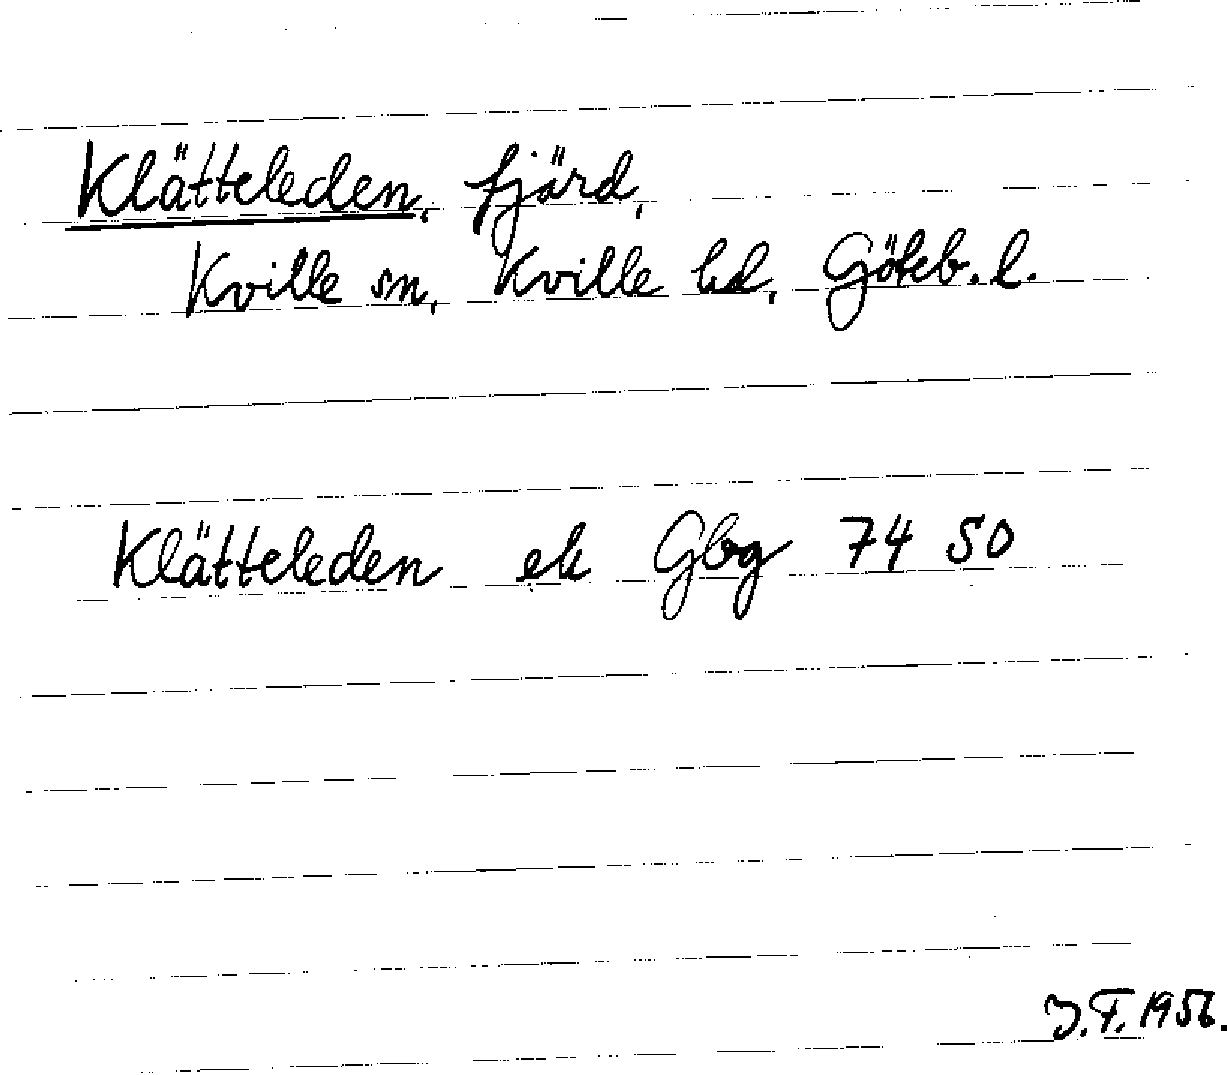 Klätteleden, fjärd,
Kville sn, Kville hd, Göteb. l.
Klätteleden ek Gbg 74 50
J.F. 1956.